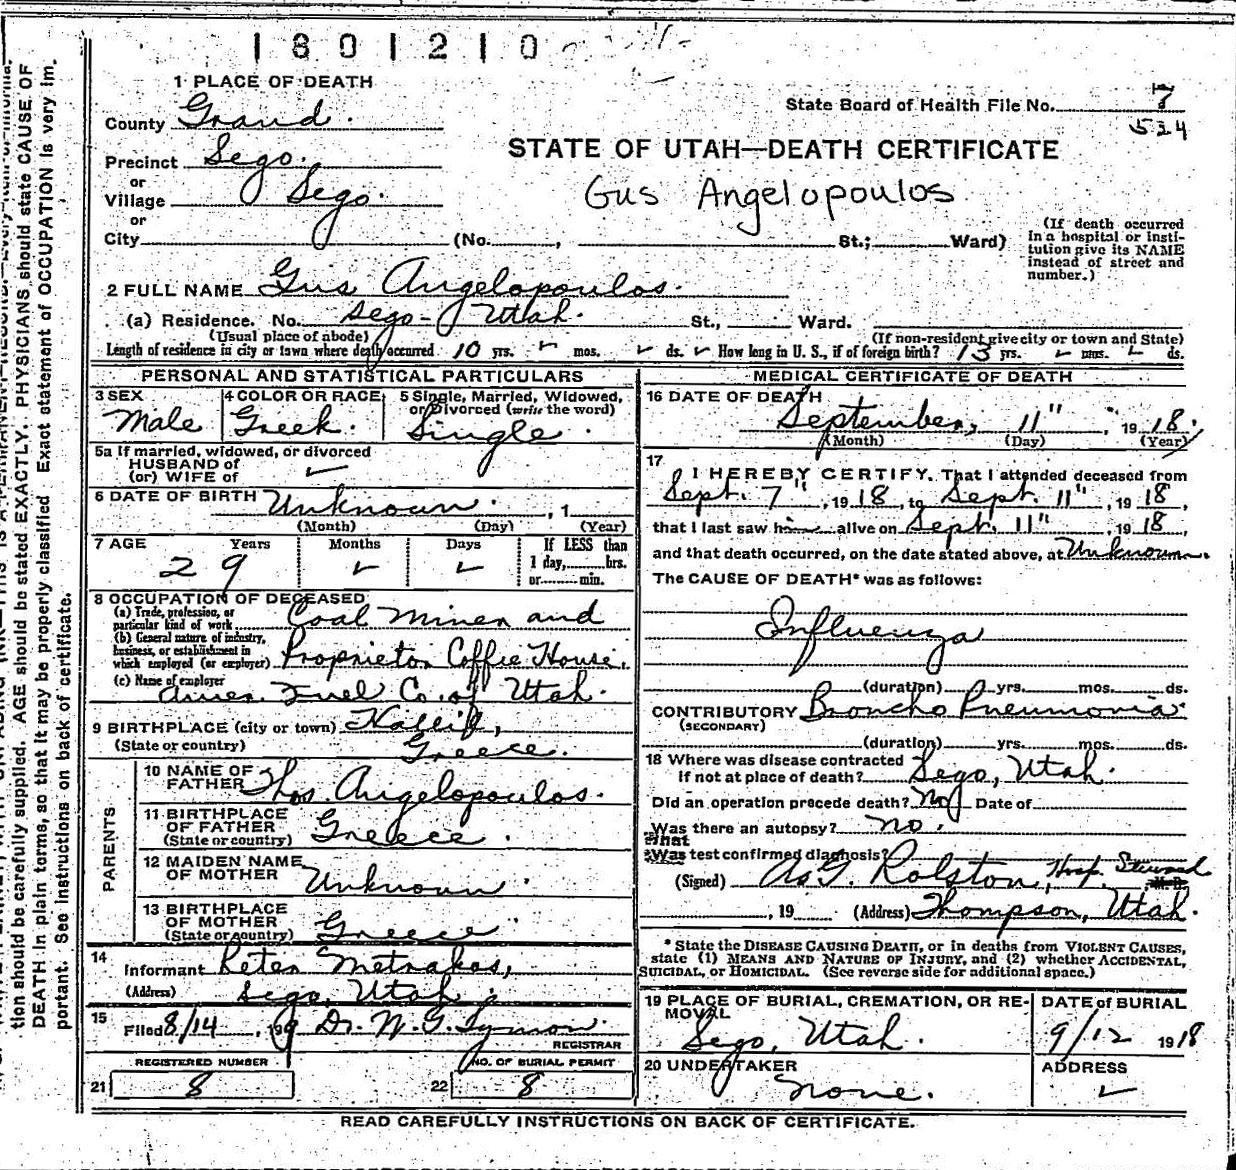 1801210
1 PLACE OF DEATH
State Board of Health File No. 7
534
County Grand.
STATE OF UTAH—DEATH CERTIFICATE
Precinct Sego.
or
Gus Angelopoulos
Village Sego.
or
City (No. , St.; Ward)
(If death occurred in a hospital or insti-
tution give its NAME
instead of street and
number.)
2 FULL NAME Gus Angelopoulos.
(a) Residence. No. Sego - Utah. St., Ward.
(Usual place of abode) (If non-resident give city or town and State)
Length of residence in city or town where death occurred 10 yrs. ✓ mos. ✓ ds. ✓ How long in U. S., if of foreign birth? 13 yrs. ✓ mos. ✓ ds.
PERSONAL AND STATISTICAL PARTICULARS
3 SEX Male
4 COLOR OR RACE Greek.
5 Single, Married, Widowed,
or Divorced (write the word)
Single
5a If married, widowed, or divorced
HUSBAND of
(or) WIFE of ✓
6 DATE OF BIRTH Unknown. , 1
(Month) (Day) (Year)
7 AGE Years Months Days If LESS than
29 ✓ ✓ 1 day, hrs.
or min.
8 OCCUPATION OF DECEASED
(a) Trade, profession, or
particular kind of work Coal Miner and
(b) General nature of industry,
business, or establishment in
which employed (or employer) Proprietor Coffie House.
(c) Name of employer
Amer. Fuel Co. of Utah.
9 BIRTHPLACE (city or town)
(State or country) Greece.
PARENTS
10 NAME OF
FATHER Thos. Angelopoulos.
11 BIRTHPLACE
OF FATHER
(State or country) Greece.
12 MAIDEN NAME
OF MOTHER Unknown.
13 BIRTHPLACE
OF MOTHER
(State or country) Greece
14
Informant Peter Metrakos,
(Address) Sego, Utah.
15
Filed 8/14, 19 Dr. W. G.
REGISTRAR
REGISTERED NUMBER
21 8
NO. OF BURIAL PERMIT
22 8
MEDICAL CERTIFICATE OF DEATH
16 DATE OF DEATH
September, 11" , 1918.
(Month) (Day) (Year)
17
I HEREBY CERTIFY. That I attended deceased from
Sept. 7", 1918, to Sept. 11", 1918,
that I last saw him alive on Sept. 11", 1918,
and that death occurred, on the date stated above, at Unknown.
The CAUSE OF DEATH* was as follows:
Influenza
(duration) yrs. mos. ds.
CONTRIBUTORY Broncho Pneumonia.
(SECONDARY)
(duration) yrs. mos. ds.
18 Where was disease contracted
if not at place of death? Sego, Utah.
Did an operation precede death? No Date of
Was there an autopsy? no.
What
Was test confirmed diagnosis?
(Signed) A. G. Rolston, Hosp. Steward
, 19 (Address) Thompson, Utah.
* State the DISEASE CAUSING DEATH, or in deaths from VIOLENT CAUSES,
state (1) MEANS AND NATURE OF INJURY, and (2) whether ACCIDENTAL,
SUICIDAL, or HOMICIDAL. (See reverse side for additional space.)
19 PLACE OF BURIAL, CREMATION, OR RE-
MOVAL
Sego, Utah.
DATE of BURIAL
9/12 1918
20 UNDERTAKER
none.
ADDRESS
✓
READ CAREFULLY INSTRUCTIONS ON BACK OF CERTIFICATE.
tion should be carefully supplied. AGE should be stated EXACTLY. PHYSICIANS should state CAUSE OF
DEATH in plain terms, so that it may be properly classified. Exact statement of OCCUPATION is very im-
portant. See instructions on back of certificate.